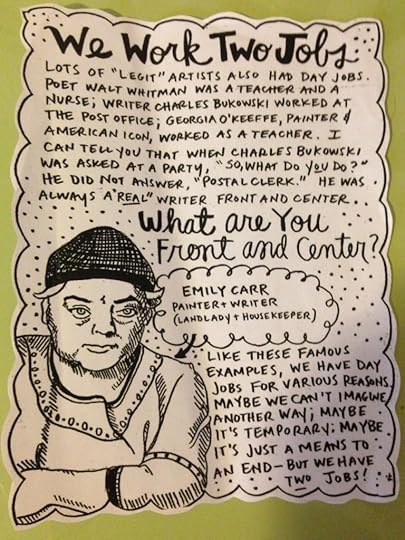 We Work Two Jobs
LOTS OF "LEGIT" ARTISTS ALSO HAD DAY JOBS.
POET WALT WHITMAN WAS A TEACHER AND A
NURSE; WRITER CHARLES BUKOWSKI WORKED AT
THE POST OFFICE; GEORGIA O'KEEFFE, PAINTER &
AMERICAN ICON, WORKED AS A TEACHER. I
CAN TELL YOU THAT WHEN CHARLES BUKOWSKI
WAS ASKED AT A PARTY, "SO, WHAT DO YOU DO?"
HE DID NOT ANSWER, "POSTAL CLERK." HE WAS
ALWAYS A "REAL" WRITER FRONT AND CENTER.
What are You
Front and Center?
EMILY CARR
PAINTER + WRITER
(LANDLADY + HOUSEKEEPER)
LIKE THESE FAMOUS
EXAMPLES, WE HAVE DAY
JOBS FOR VARIOUS REASONS.
MAYBE WE CAN'T IMAGINE
ANOTHER WAY; MAYBE
IT'S TEMPORARY; MAYBE
IT'S JUST A MEANS TO
AN END—BUT WE HAVE
TWO JOBS!